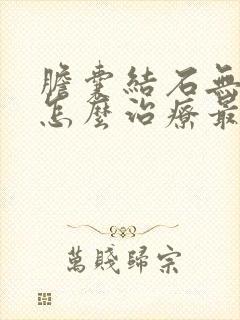 膽囊結石無
怎麼治療最
萬賤歸宗